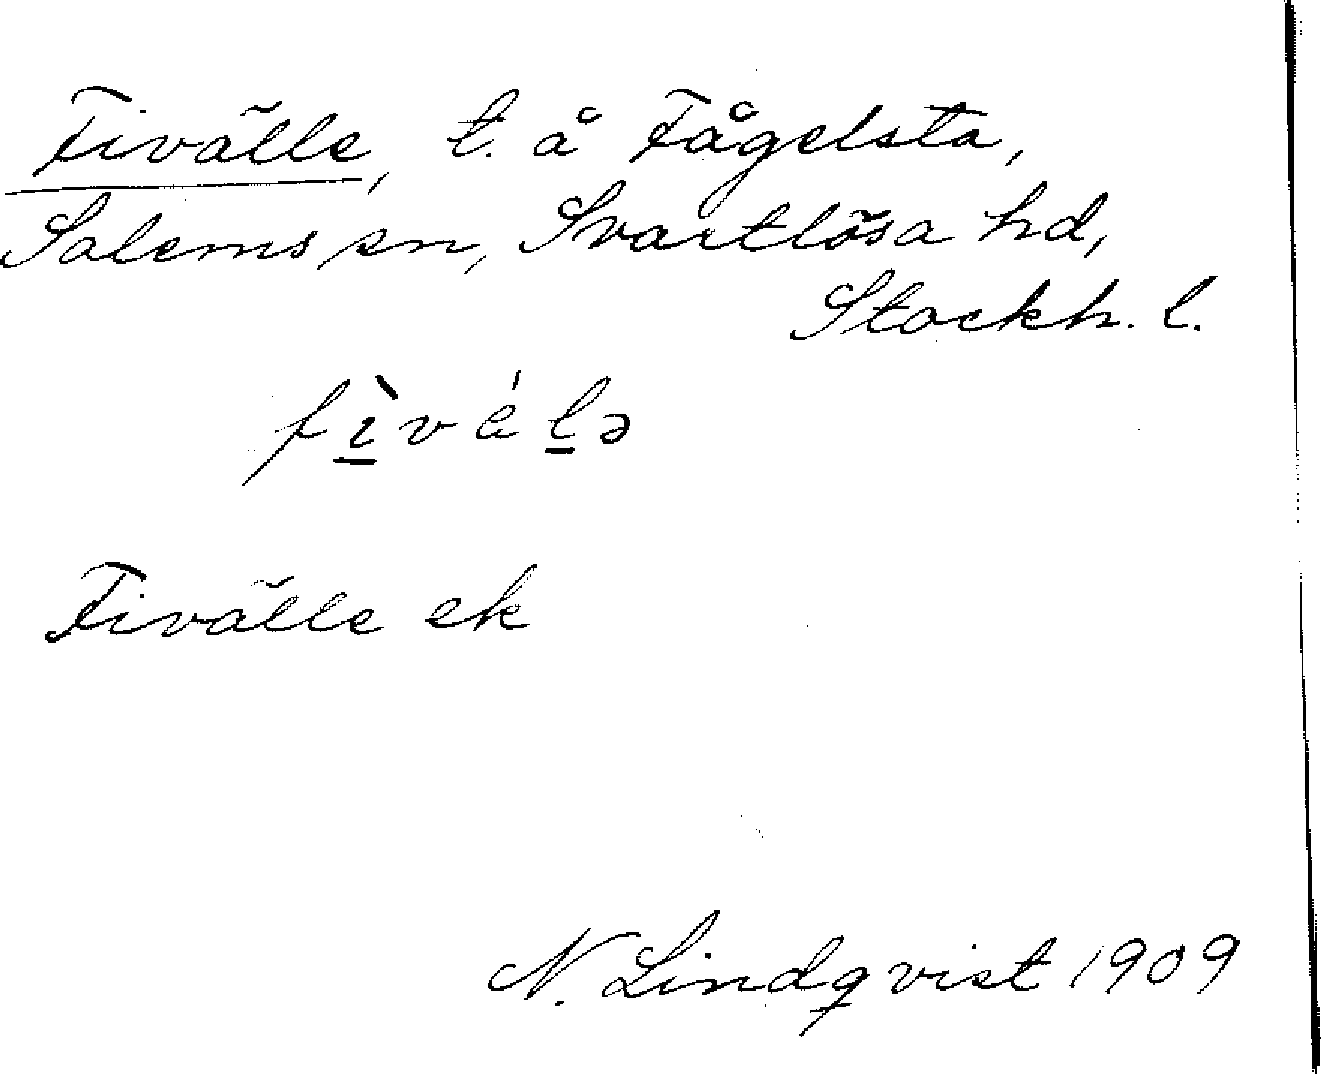 Fivälle, t. å Fågelsta,
Salems sn, Svartlösa hd,
Stockh. l.
fìváḻə
Fivälle ek
N. Lindqvist 1909